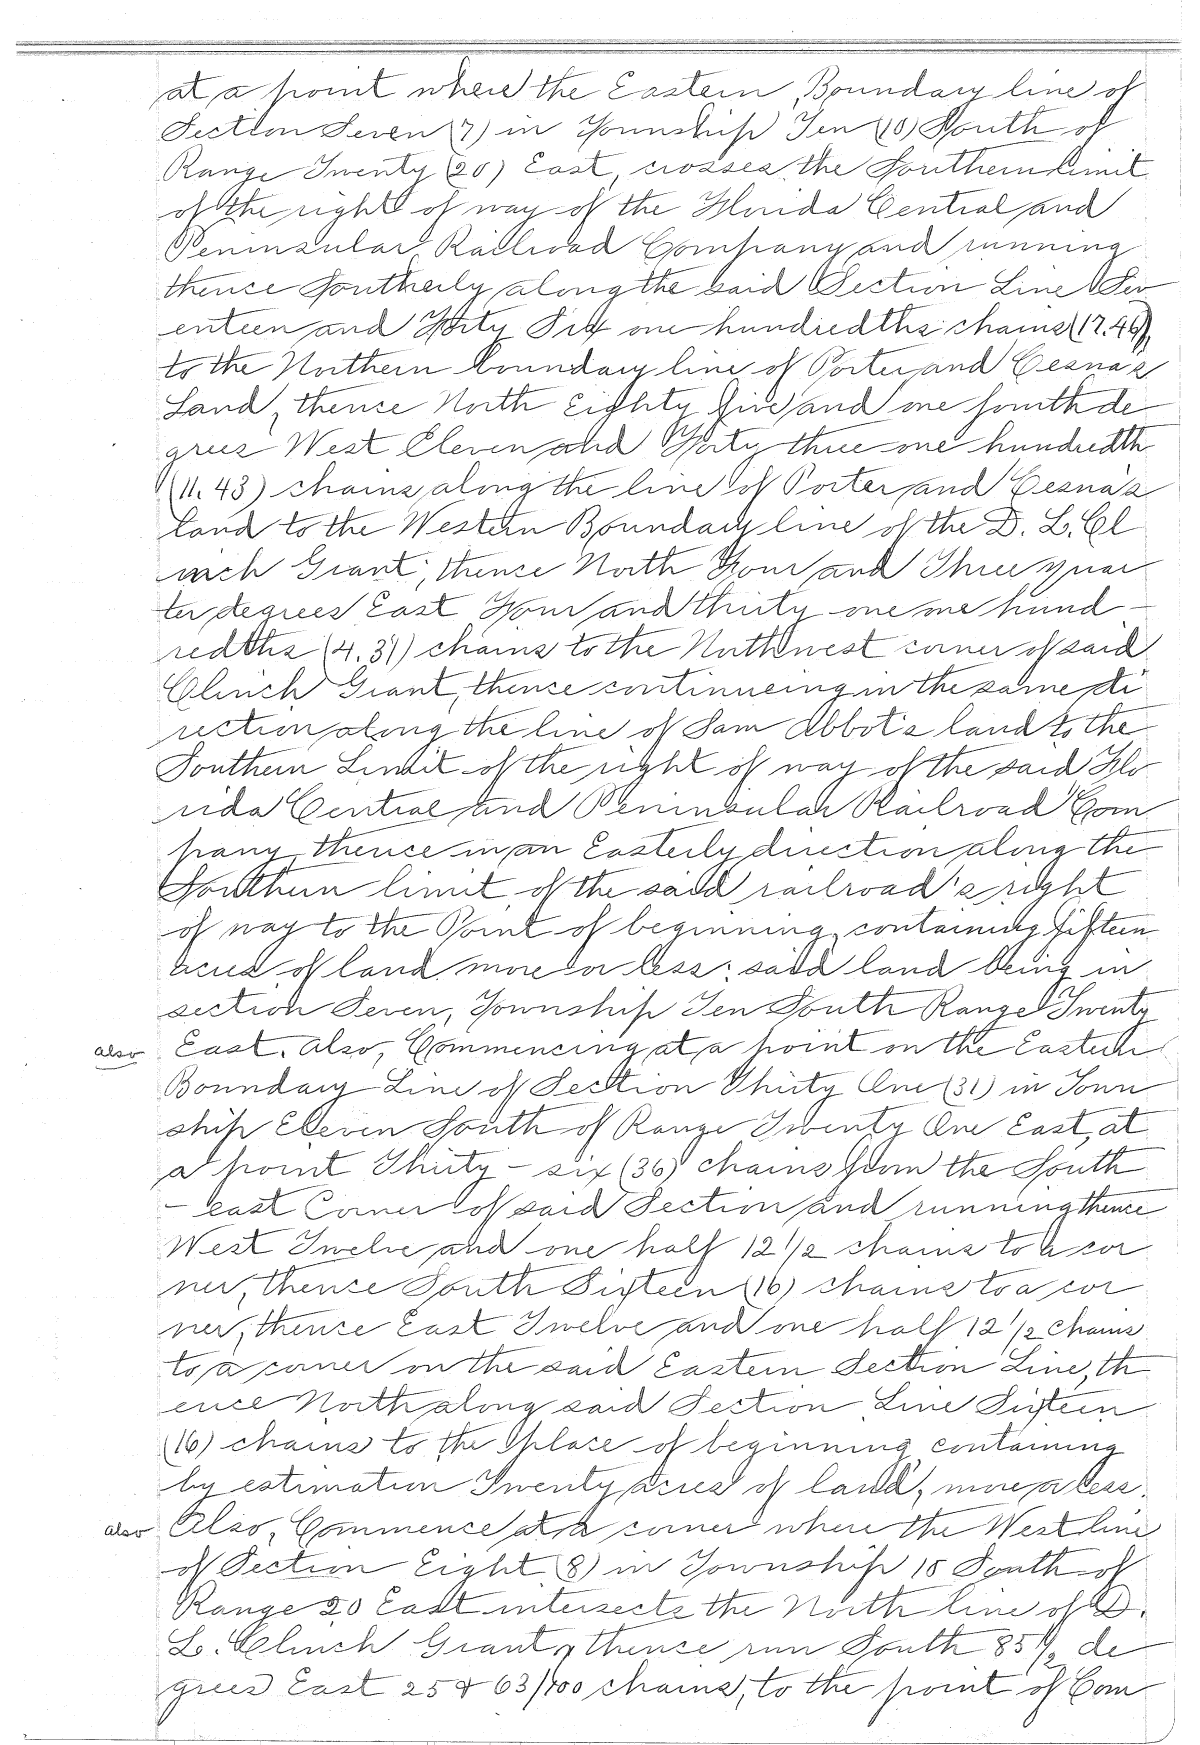 at a point where the Eastern Boundary line of
Section Seven (7) in Township Ten (10) South of
Range Twenty (20) East, crosses the Southern Limit
of the right of way of the Florida Central and
Peninsular Railroad Company and running
thence Southerly along the said Section Line Sev
enteen and Forty Six one hundredths chains (17.46),
to the Northern boundary line of Porter and Cesna's
Land, thence North Eighty five and one fourth de
grees West Eleven and Forty three one hundredth
(11.43) chains along the line of Porter and Cesna's
land to the Western Boundary line of the D. L. Cl
inch Grant; thence North Four and Three quar
ter degrees East Four and thirty one one hund -
redths (4.31) chains to the Northwest corner of said
Clinch Grant, thence continueing in the same di
rection along the line of Sam Abbot's land to the
Southern Limit of the right of way of the said Flo
rida Central and Peninsular Railroad Com
pany, thence in an Easterly direction along the
Southern limit of the said railroad's right
of way to the Point of beginning, containing fifteen
acres of land more or less: said land being in
section Seven, Township Ten South Range Twenty
also East. Also, Commencing at a point on the Eastern
Boundary Line of Section Thirty One (31) in Town
ship Eleven South of Range Twenty One East, at
a point Thirty - six (36) chains from the South
- east Corner of said Section and running thence
West Twelve and one half 12 1/2 chains to a cor
ner, thence South Sixteen (16) chains to a cor
ner, thence East Twelve and one half 12 1/2 chains
to a corner on the said Eastern Section Line, th
ence North along said Section Line Sixteen
(16) chains to the place of beginning containing
by estimation Twenty acres of land, more or less.
also Also, Commence at a corner where the West line
of Section Eight (8) in Township 10 South of
Range 20 East intersects the North line of D.
L. Clinch Grant, thence run South 85 1/2 de
grees East 25 & 63/100 chains, to the point of Com